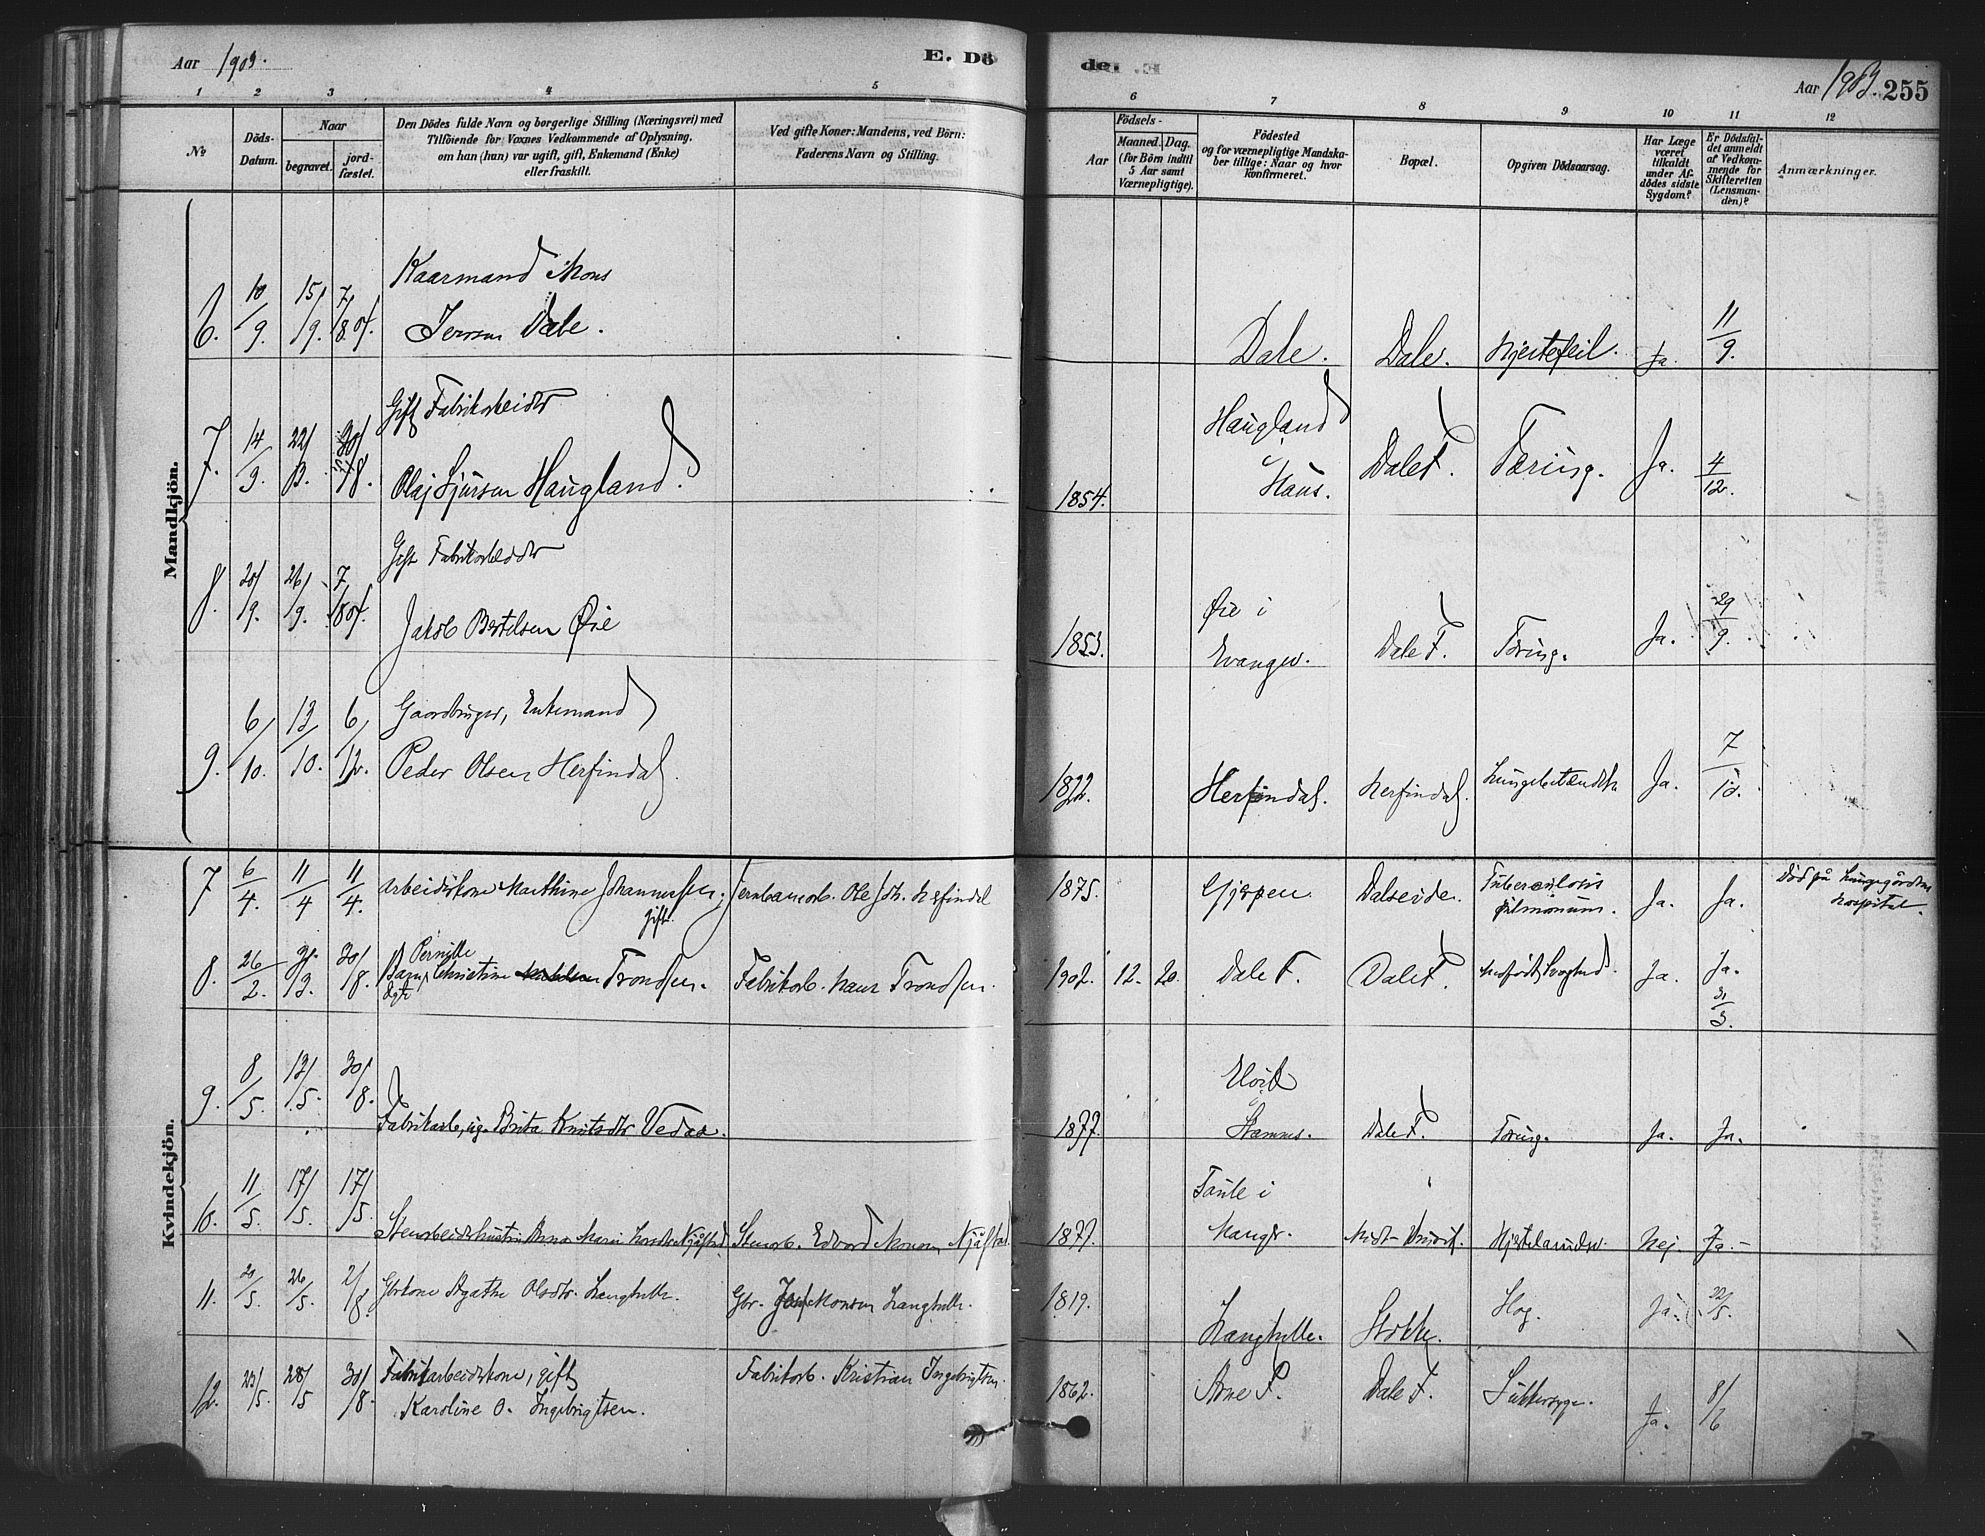 Aar 1903.
E. Dö
de
Aar 1903. 255
1 2 3 4 5 6 7 8 9 10 11 12
No
Döds-
Datum.
Naar
begravet.
jord-
fæstet.
Den Dödes fulde Navn og borgerlige Stilling (Næringsvei) med
Tilföiende for Voxnes Vedkommende af Oplysning,
om han (hun) var ugift, gift, Enkemand (Enke)
eller fraskilt.
Ved gifte Koner: Mandens, ved Börn:
Faderens Navn og Stilling.
Födsels-
Aar
Maaned. Dag.
(for Börn indtil
5 Aar samt
Værnepligtige).
Födested
og for værnepligtige Mandska-
ber tillige: Naar og hvor
konfirmeret.
Bopæl.
Opgiven Dödsaarsag.
Har Læge
været
tilkaldt
under Af-
dödes sidste
Sygdom?
Er Dödsfal-
det anmeldt
af Vedkom-
mende for
Skifteretten
(Lensman-
den)?
Anmærkninger.
Mandkjön.
6. 10/9. 15/9. 7/8 04. Kaarmand Mons
Jensen Dale. Dale. Dale. Hjertefeil. Ja. 11/9.
7. 14/9. 22/ 30/8. Gift Fabrikarbeider
Olaj Sjursen Haugland. 1854. Haugland
Haus. Dale F. Tæring. Ja. 4/12.
8. 20/9. 26/9. 7/8 04. Gift Fabrikarbeider
Jakob Bertelsen Øie 1853. Øie i
Evanger. Dale F. Tæring. Ja. 29/9.
9. 6/10. 13/10. 6/12. Gaardbruger, Enkemand
Peder Olsen Herfindal. 1822. Herfindal. Herfindal. Lungebetændelse Ja. 7/10.
Kvindekjön.
7 6/4. 11/4 11/4. Arbeiderkone Marthine Johannessen; gift. Jernbanearb. Ole Joh. Herfindal 1875. Gjerpen. Dalseide. Tuberculosis
pulmonum. Ja. Ja. Död på Lungegårdens
hospital.
8. 26/2. 30/8. Barn, ægte Pernille Christine Trondsen. Fabrikarb. Hans Trondsen. 1902. 12. 20. Dale F. Dale F. Medfødt Svaghed. Ja. Ja.
31/3.
9. 8/5. 13/5. 30/8. Fabrikarb., ug. Brita Knutsdtr Vedaa. 1877. Eloid
Hamre. Dale F. Tæring. Ja. Ja.
10. 11/5. 17/5. 17/5. Stenarbeiderhustru Anna Marie Njåstad Stenarb. Edvard Monsen Njåstad. 1877. Taule i
Manger. Hjertelamelse. Nej. Ja.
11. 20/5. 26/5. 2/8. Gbrkone Agathe Olsdtr. Langhelle. Gbr. Monsen Langhelle. 1819. Langhelle. Stokke. Slag. Ja. 22/5.
12. 23/5. 28/5 30/8. Fabrikarbeiderkone, gift
Karoline O. Ingebrigtsen. Fabrikarb. Kristian Ingebrigtsen. 1862. Arne F. Dale F. Sukkersyge. Ja. 8/6